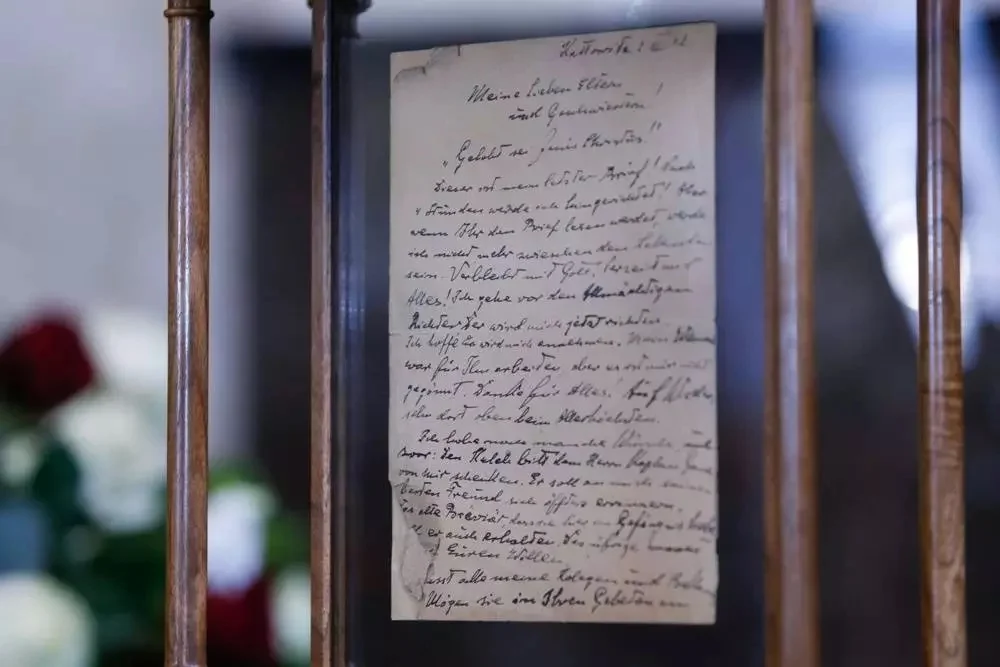 Kattowitz
Meine Lieben Eltern
und Geschwistern!
„Gelobt sei Jesus Christus!"
Dieser ist mein letzter Brief! Nach
4 Stunden werde ich hingerichtet! Aber
wenn Ihr den Brief lesen werdet, werde
ich nicht mehr zwischen den Lebenden
sein. Verbleibt mit Gott! Verzeiht mir
Alles! Ich gehe vor den Allmächtigen
Richter der wird mich jetzt richten.
Ich hoffe Er wird mich annehmen. Mein
war für Ihn arbeiten, aber es ist mir nicht
gegönnt. Danke für Alles! Auf Wieder
sehn dort oben beim Allerhöchsten.
Ich habe noch manche Wünsche, und
zwar: Den Kelch bitt dem Herrn Kaplan
von mir schenken. Er soll an mich seinen
besten Freund sich öffters errinnern.
alte Breviär, das sie hier im Gefängnis
er auch erhalten. Das übrige
Euren Willen.
alle meine Kolegen und
Mögen sie in Ihren Gebeten an